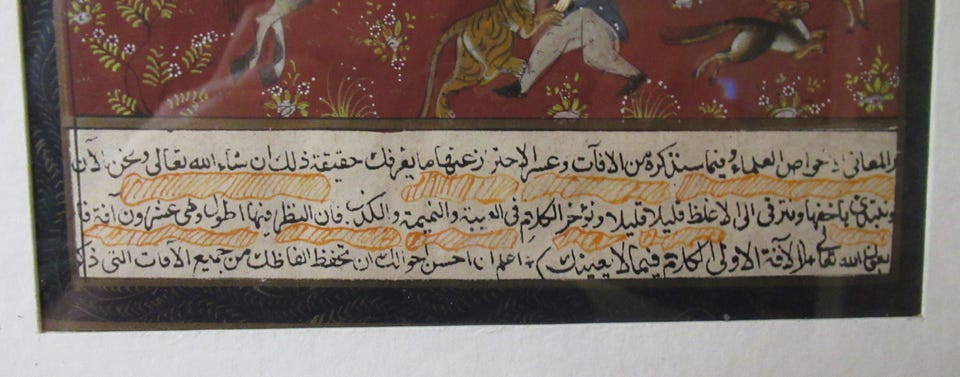 والمعانى الا خواص العلماء وفيما سنذكره من الآفات وعسر الاحتراز عنها ما يعرفك حقيقة ذلك ان شاء الله تعالى ونحن الآن
ونبتدئ باخفها ونترقى الى الاغلظ قليلا قليلا ونؤخر الكلام فى الغيبة والنميمة والكذب فان النظر فيها اطول وهى عشرون آفة
بعون الله تعالى الآفة الاولى الكلام فيما لا يعنيك) اعلم ان احسن احوالك ان تحفظ الفاظك من جميع الآفات التى